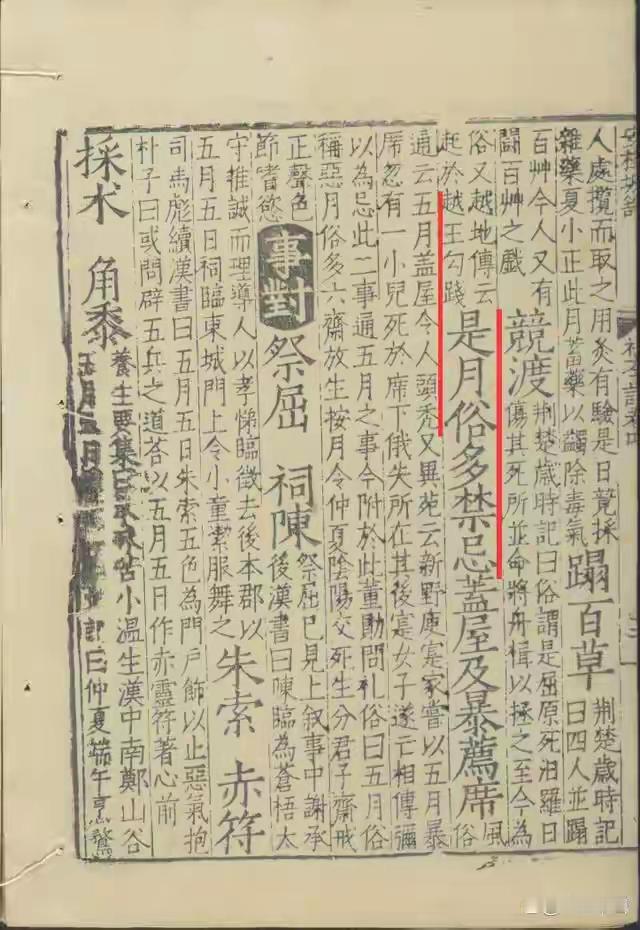 人處攬而取之用灸有驗是日競採
雜藥夏小正此月畜藥以蠲除毒氣
蹋百草
荆楚歲時記
曰四人並蹋
百艸今人又有
鬭百艸之戲
競渡
荆楚歲時記曰俗謂是屈原死汨羅日
傷其死所並命將舟楫以拯之至今為
俗又越地傳云
起於越王勾踐
是月俗多禁忌蓋屋及暴薦席
風
俗
通云五月蓋屋令人頭禿又異苑云新野庾寔家嘗以五月暴
席忽有一小兒死於席下俄失所在其後寔女子遂亡相傳彌
以為忌此二事通五月之事今附於此董勛問礼俗曰五月俗
稱惡月俗多六齋放生按月令仲夏陰陽交死生分君子齋戒
正聲色
節嗜慾
事對
祭屈 祠陳
祭屈已見上叙事中謝承
後漢書曰陳臨為蒼梧太
守推誠而理導人以孝悌臨徵去後本郡以
五月五日祠臨東城門上令小童潔服舞之
朱索 赤符
司馬彪續漢書曰五月五日朱索五色為門戶飾以止惡氣抱
朴子曰或問辟五兵之道荅以五月五日作赤靈符著心前
採朮 角黍
養生要集曰 小溫生漢中南鄭山谷
五月五日 記曰仲夏端午烹鶩